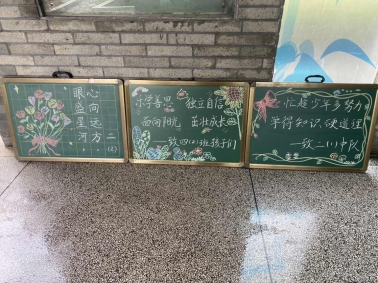 眼盛星河
心向远方
二(2)
乐学善思 独立自信
面向阳光 茁壮成长
—致四(2)班孩子们
忙趁少年多努力
学得知识硬道理
—致二(1)中队